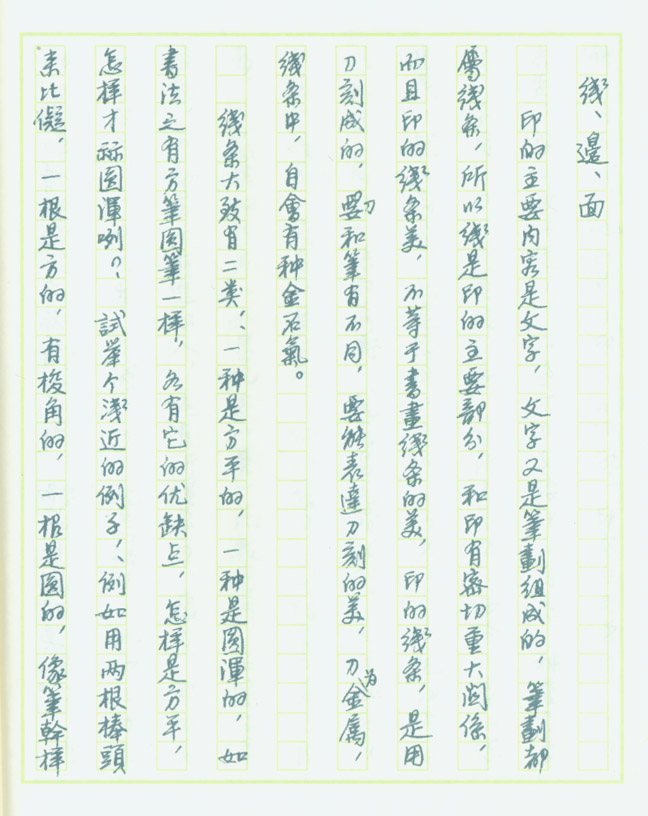 线、邊、面
印的主要内容是文字，文字又是筆劃組成的，筆劃都
屬线条，所以线是印的主要部分，和印有密切重大関係，
而且印的线条美，不等于書畫线条的美，印的线条，是用
刀刻成的，要和筆有不同，要能表達刀刻的美，刀为金属，
线条中，自會有种金石氣。
线条大致有二类，一种是方平的，一种是圆渾的，如
書法之有方筆圆筆一样，各有它的优缺点，怎样是方平，
怎样才称圆渾咧？試举个浅近的例子，例如用两根棒頭
来比儗，一根是方的，有棱角的，一根是圆的，像筆幹样